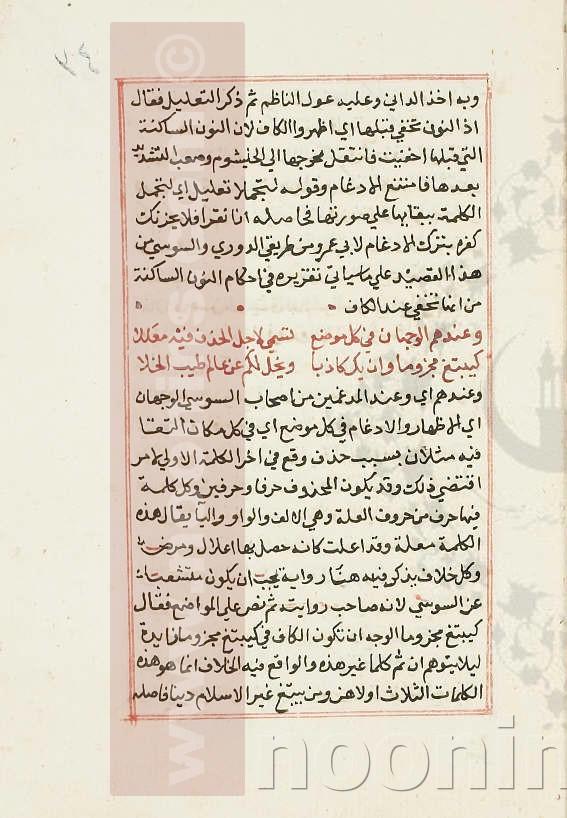 وبه اخذ الداني وعليه عول الناظم ثم ذكر التعليل فقال
اذ النون تخفي قبلها اي اظهروا الكاف لان النون الساكنة
التي قبلها اخفيت فانتقل مخرجها الي الخيشوم وصعب التشديد
بعدها فامتنع الادغام وقوله لتجملا تعليل اي لتجمل
الكلمة ببقايها علي صورتها فحاصله انا نقرا فلا يحزنك
كفره بترك الادغام لابي عمرو من طريقي الدوري والسوسي من
هذا القصيد علي ماسياتي تقريره في احكام النون الساكنة
من انها تخفي عند الكاف
وعندهم الوجهان في كل موضع تسمي لاجل الحذف فيه معللا
كيبتغ مجزوما وان يك كاذبا ويخل لكم عن عالم طيب الخلا
وعندهم اي وعند المدغمين من اصحاب السوسي الوجهان
اي الاظهار والادغام في كل موضع اي في كل مكان التقا
فيه مثلان بسبب حذف وقع في اخر الكلمة الاولي لامر
اقتضي ذلك وقد يكون المحذوف حرفا وحرفين وكل كلمة
فيها حرف من حروف العلة وهي الالف والواو واليا يقال هذه
الكلمة معلة وقد اعلت كانه حصل بها اعلال ومرض
وكل خلاف يذكر فيه هنا رواية يجب ان يكون متشعبا
عن السوسي لانه صاحب روايته ثم نص علي المواضع فقال
كيبتغ مجزوما الوجه ان تكون الكاف في كيبتغ مجزوما زايدة
ليلا يتوهم ان ثم كلما غير هذه والواقع فيه الخلاف انما هو هذه
الكلمات الثلاث اولاهن ومن يبتغ غير الاسلام دينا فاصله
www. ©
noonin